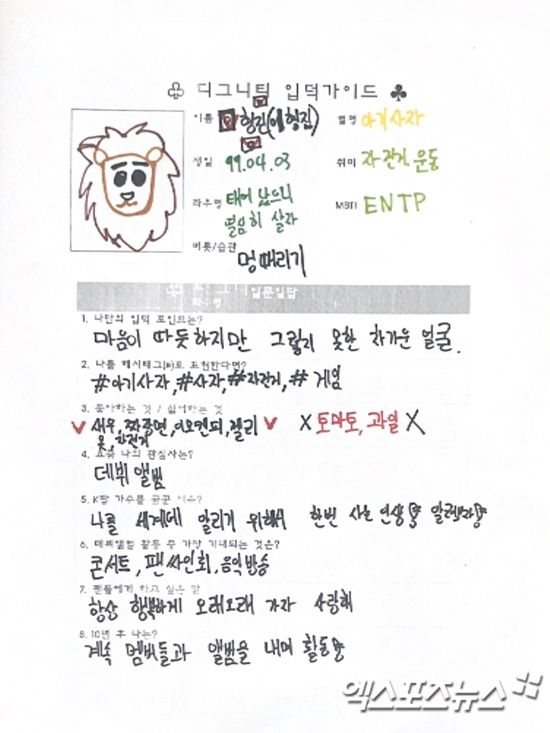 디그니티 입덕가이드
이름 형진(이형진) 별명 아기사자
생일 99.04.03 취미 자전거 운동
좌우명 태어났으니 열심히 살자 MBTI ENTP
버릇/습관 멍때리기
일문일답
1. 나만의 입덕 포인트는?
마음이 따듯하지만 그렇지 못한 차가운 얼굴.
2. 나를 해시태그(#)로 표현한다면?
#아기사자, #사자, #자전거, #게임
3. 좋아하는 것 / 싫어하는 것
새우, 짜장면, 젤리 X 토마토, 과일 X
옷, 자전거
4. 요즘 나의 관심사는?
데뷔 앨범
5. K팝 가수를 꿈꾼 이유?
나를 세계에 알리기 위해서 한번 사는 인생
6. 데뷔앨범 활동 중 가장 기대되는 것은?
콘서트, 팬싸인회, 음악방송
7. 팬들에게 하고 싶은 말
항상 행복하게 오래오래 가자 사랑해
8. 10년 후 나는?
계속 멤버들과 앨범을 내며 활동
엑스포츠뉴스